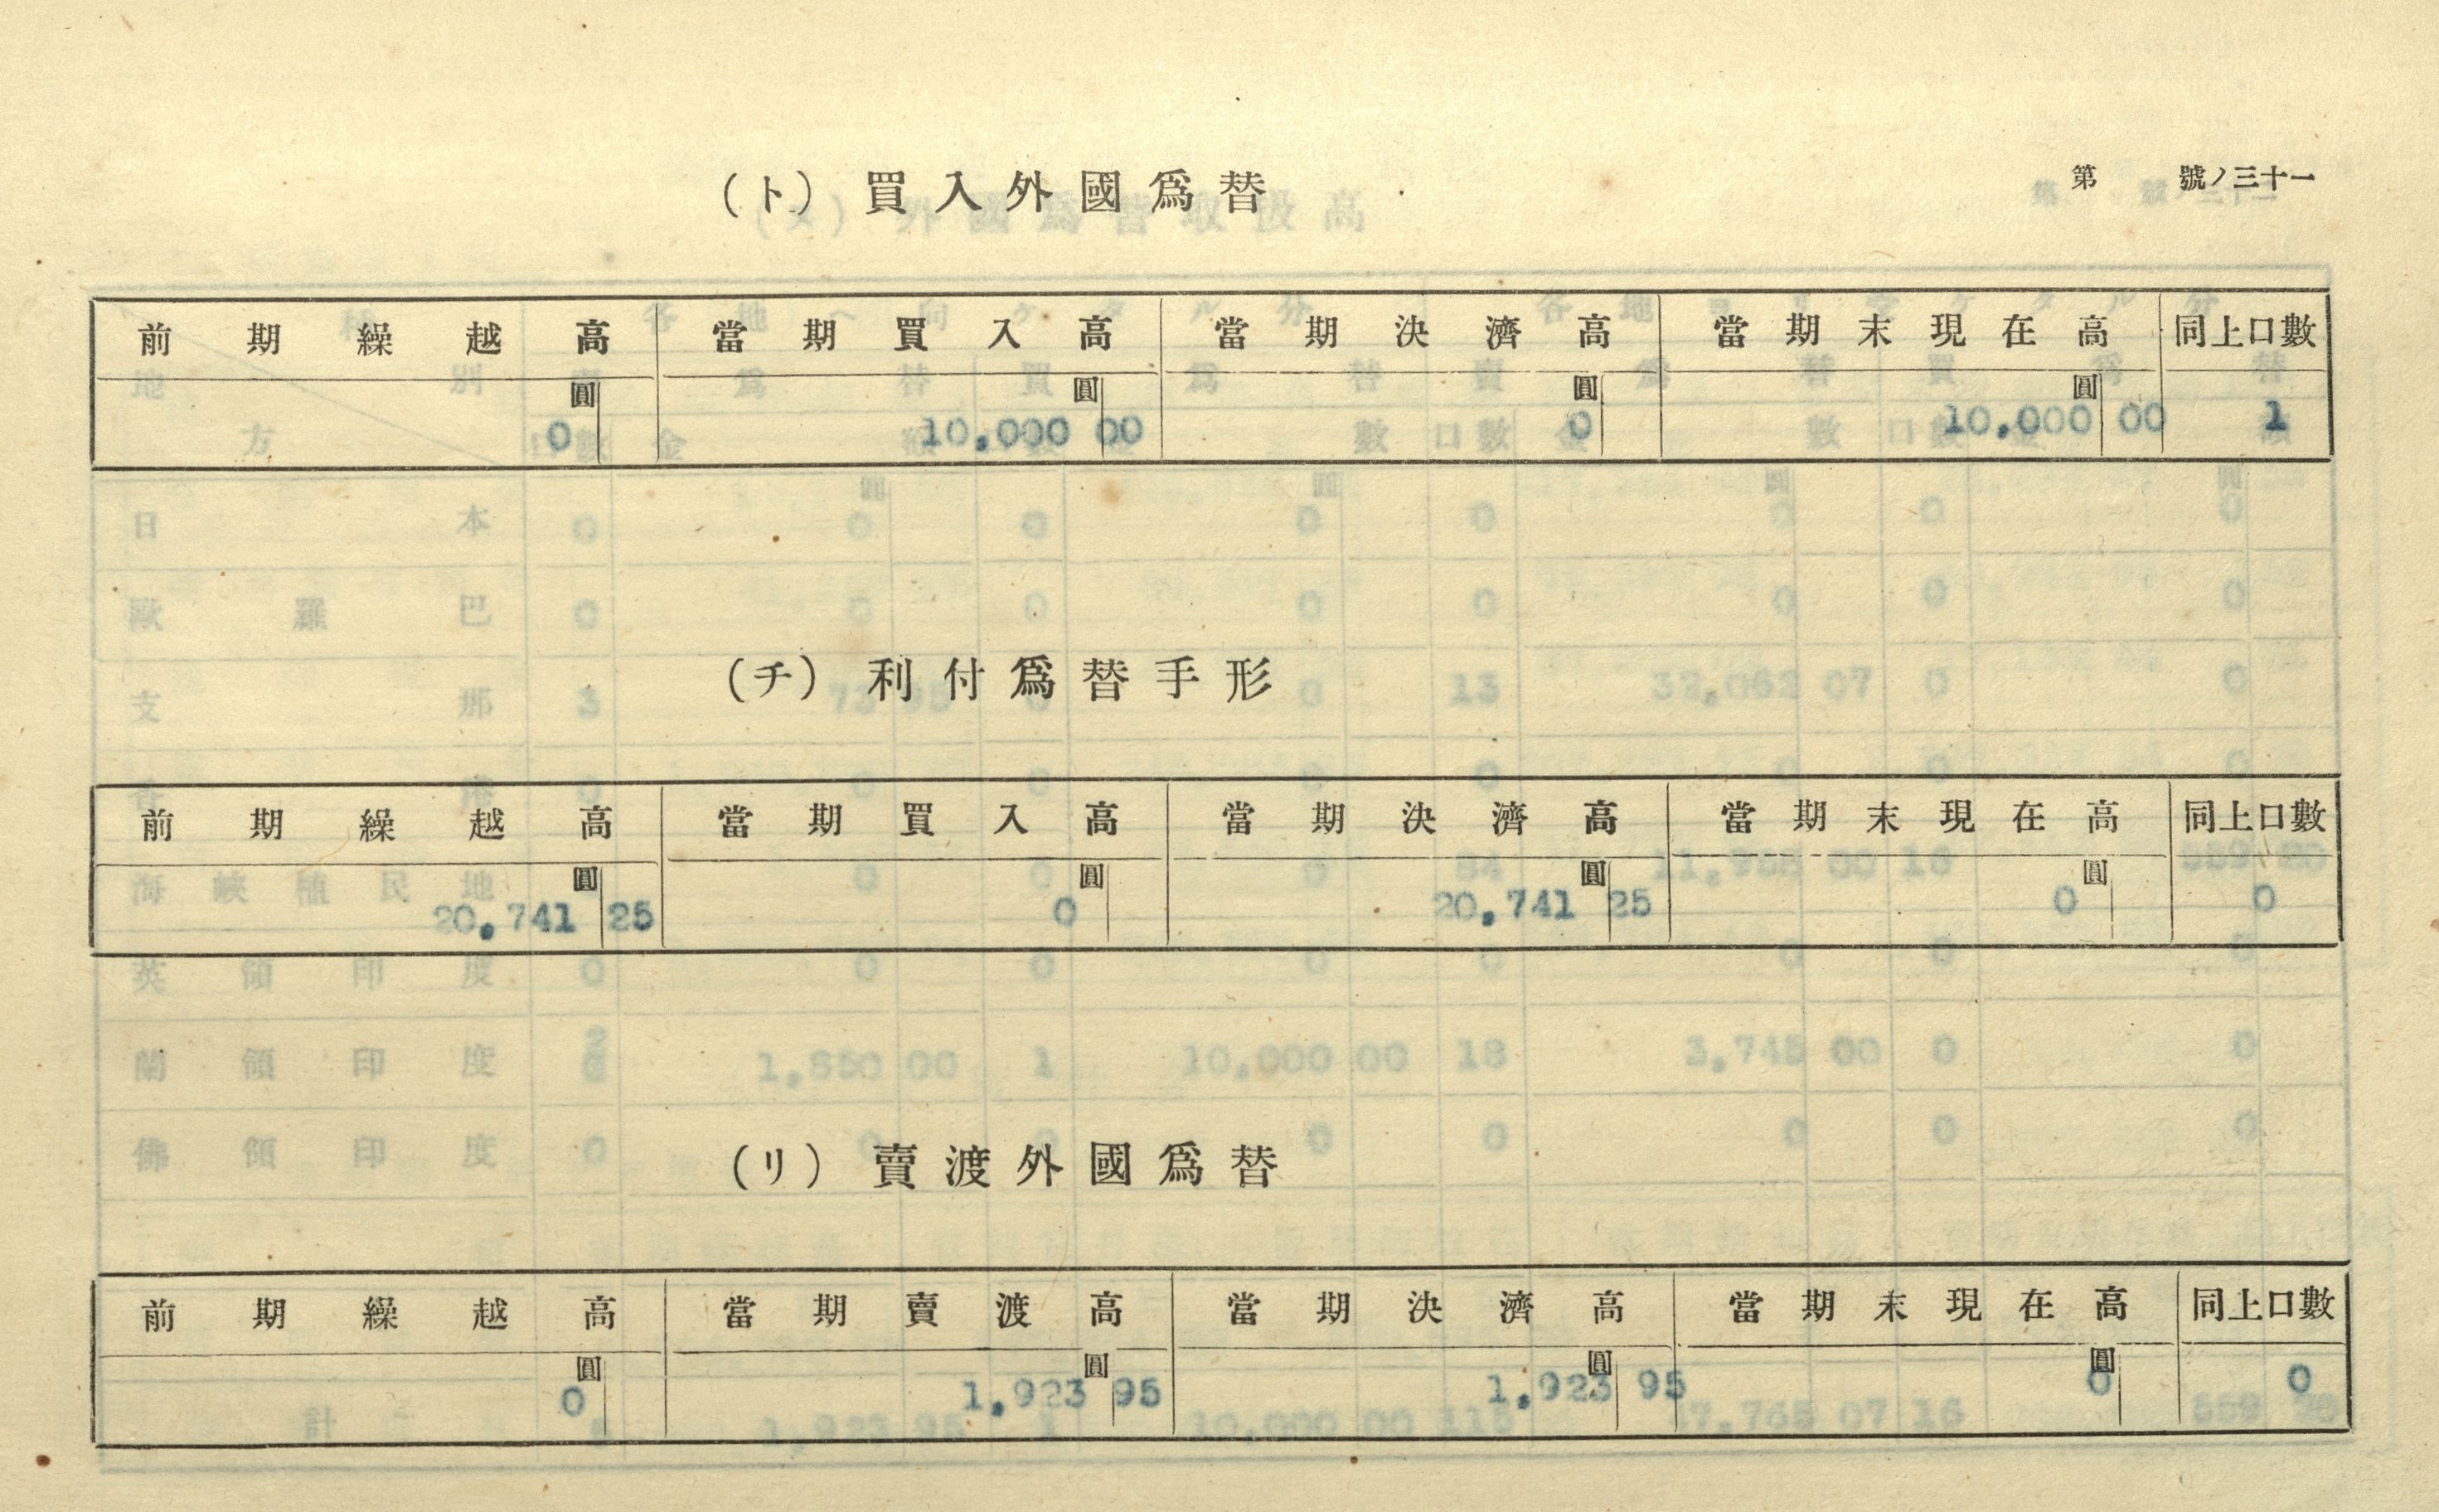 第 號ノ三十一
(ト) 買入外國爲替
前期繰越高 當期買入高 當期決濟高 當期末現在高 同上口數
圓 圓 圓 圓
0 10,000 00 0 10,000 00 1
(チ) 利付爲替手形
前期繰越高 當期買入高 當期決濟高 當期末現在高 同上口數
圓 圓 圓 圓
20,741 25 0 20,741 25 0 0
(リ) 賣渡外國爲替
前期繰越高 當期賣渡高 當期決濟高 當期末現在高 同上口數
圓 圓 圓 圓
0 1,923 95 1,923 95 0 0